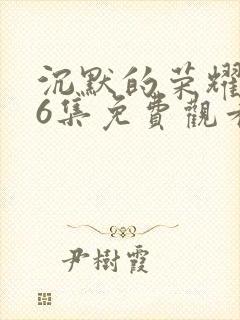 沉默的荣耀
6集免費觀看
尹樹霞